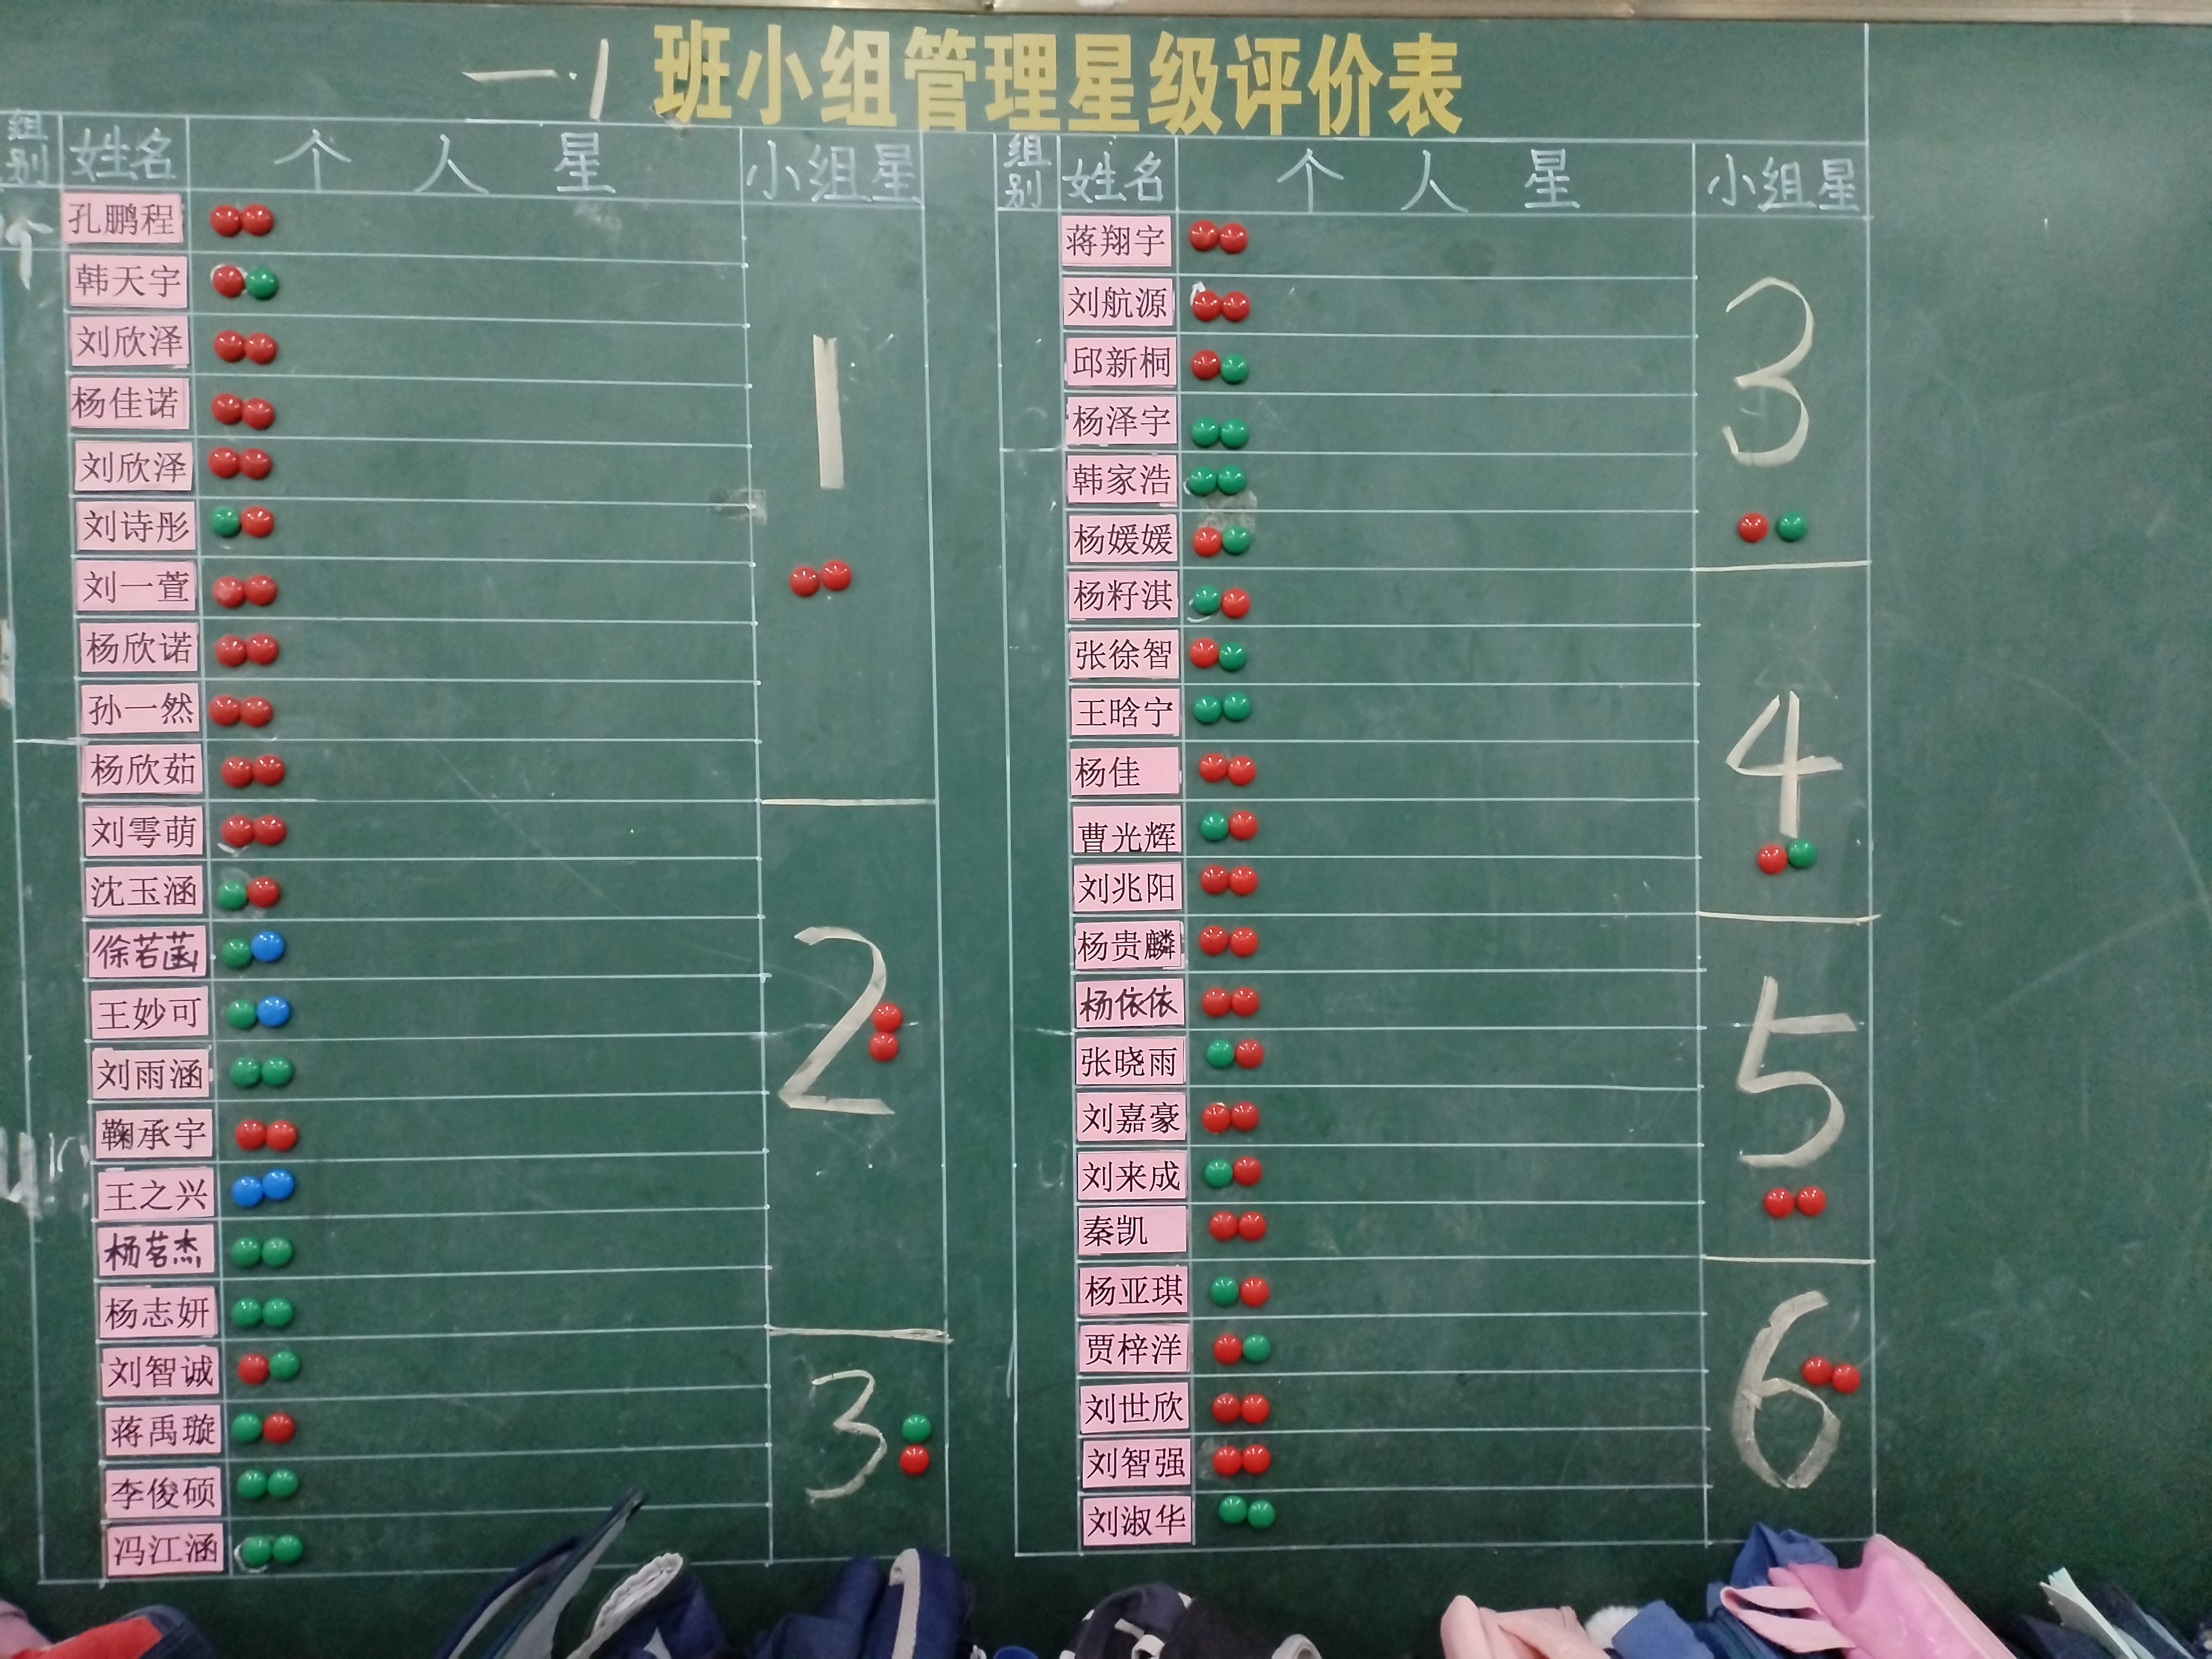 一.1 班小组管理星级评价表
组别 姓名 个人星 小组星
孔鹏程
韩天宇
刘欣泽
杨佳诺
刘欣泽
刘诗彤
刘一萱
杨欣诺
孙一然
杨欣茹
1
刘雩萌
沈玉涵
徐若菡
王妙可
刘雨涵
鞠承宇
王之兴
杨茗杰
杨志妍
2
刘智诚
蒋禹璇
李俊硕
冯江涵
3
组别 姓名 个人星 小组星
蒋翔宇
刘航源
邱新桐
杨泽宇
韩家浩
杨媛媛
3
杨籽淇
张徐智
王晗宁
杨佳
曹光辉
刘兆阳
4
杨贵麟
杨依依
张晓雨
刘嘉豪
刘来成
秦凯
5
杨亚琪
贾梓洋
刘世欣
刘智强
刘淑华
6